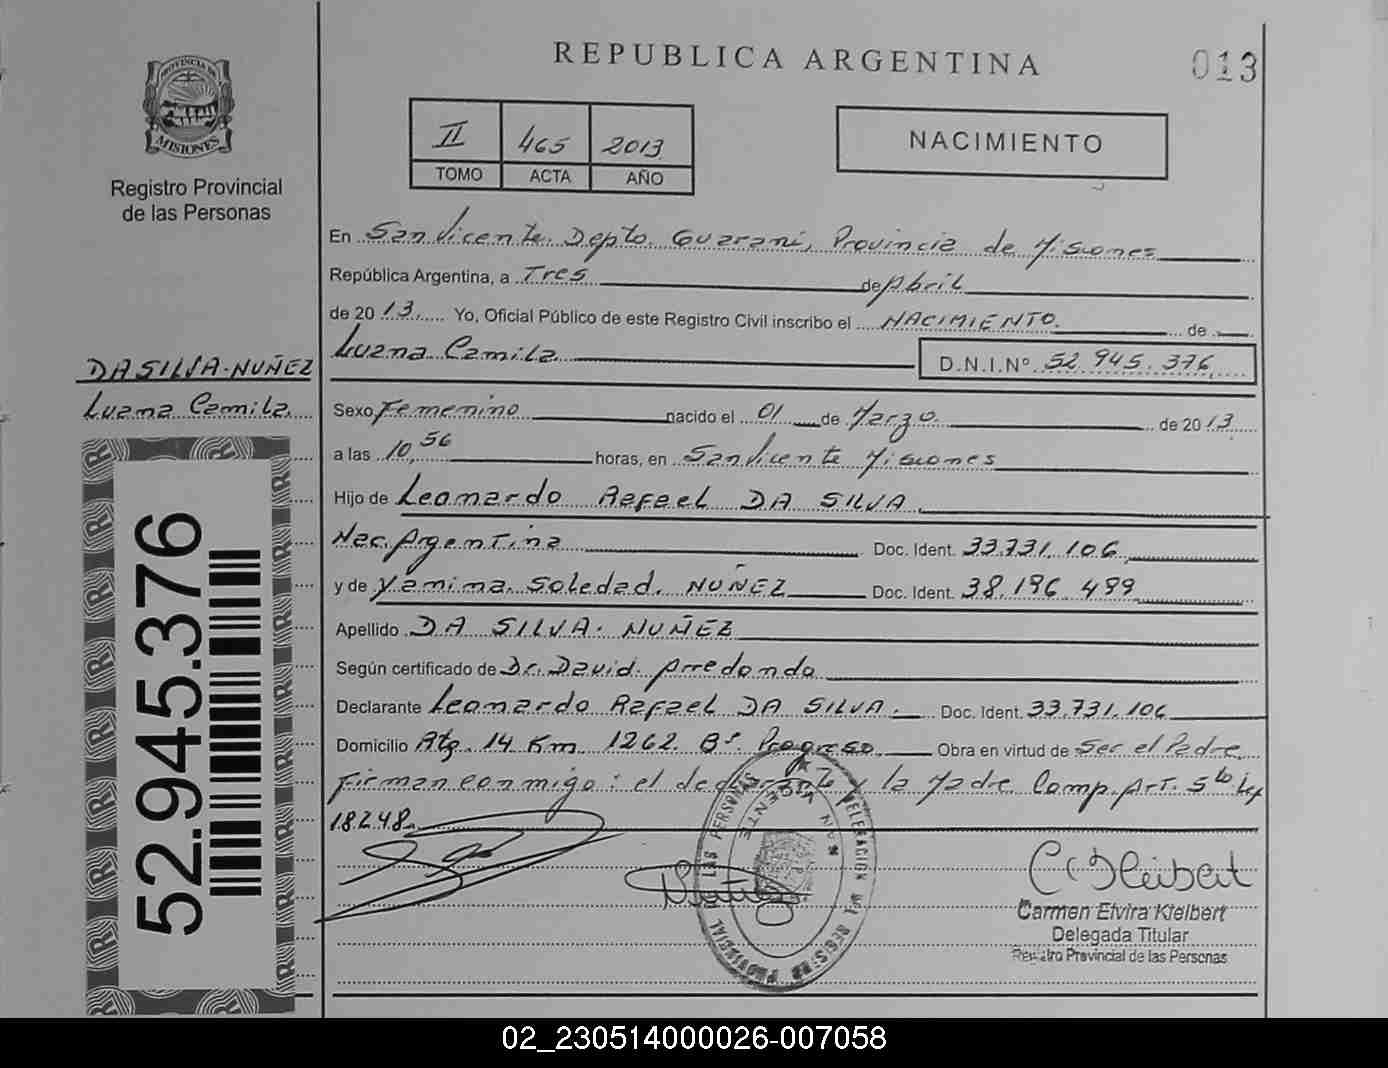 REPUBLICA ARGENTINA
013
PROVINCIA DE
MISIONES
Registro Provincial
de las Personas
II 465 2013
TOMO ACTA AÑO
NACIMIENTO
En San Vicente. Depto. Guaraní, Provincia de Misiones
República Argentina, a Tres de Abril
de 2013 Yo, Oficial Público de este Registro Civil inscribo el NACIMIENTO. de
Luana Camila D.N.I.Nº 52.945.376
DA SILVA-NUÑEZ
Luana Camila
Sexo Femenino nacido el 01 de Marzo de 2013
a las 10,56 horas, en San Vicente Misiones
Hijo de Leonardo Rafael DA SILVA
Nac. Argentina Doc. Ident. 33.731.106
y de Yamina Soledad. NUÑEZ Doc. Ident. 38.196.499
Apellido DA SILVA-NUÑEZ
Según certificado de Dr. David Arredondo
Declarante Leonardo Rafael DA SILVA. Doc. Ident. 33.731.106
Domicilio Rta. 14 Km 1262. Bº. Progreso Obra en virtud de Ser el Padre
Firman conmigo: el declarante y la Madre Comp. Art. 5to Ley
18248.
52.945.376
Carmen Elvira Kleibert
Delegada Titular
Registro Provincial de las Personas
DELEGACION DEL REGISTRO PROVINCIAL DE LAS PERSONAS
SAN VICENTE
02_230514000026-007058